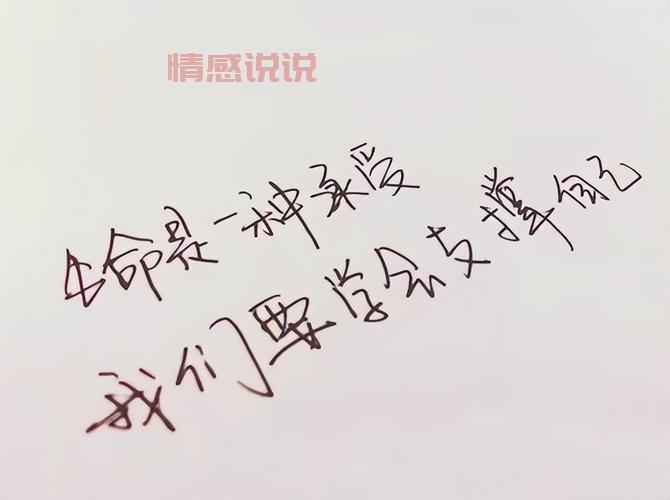 情感说说
生命是一种承受
我们要学会支撑自己